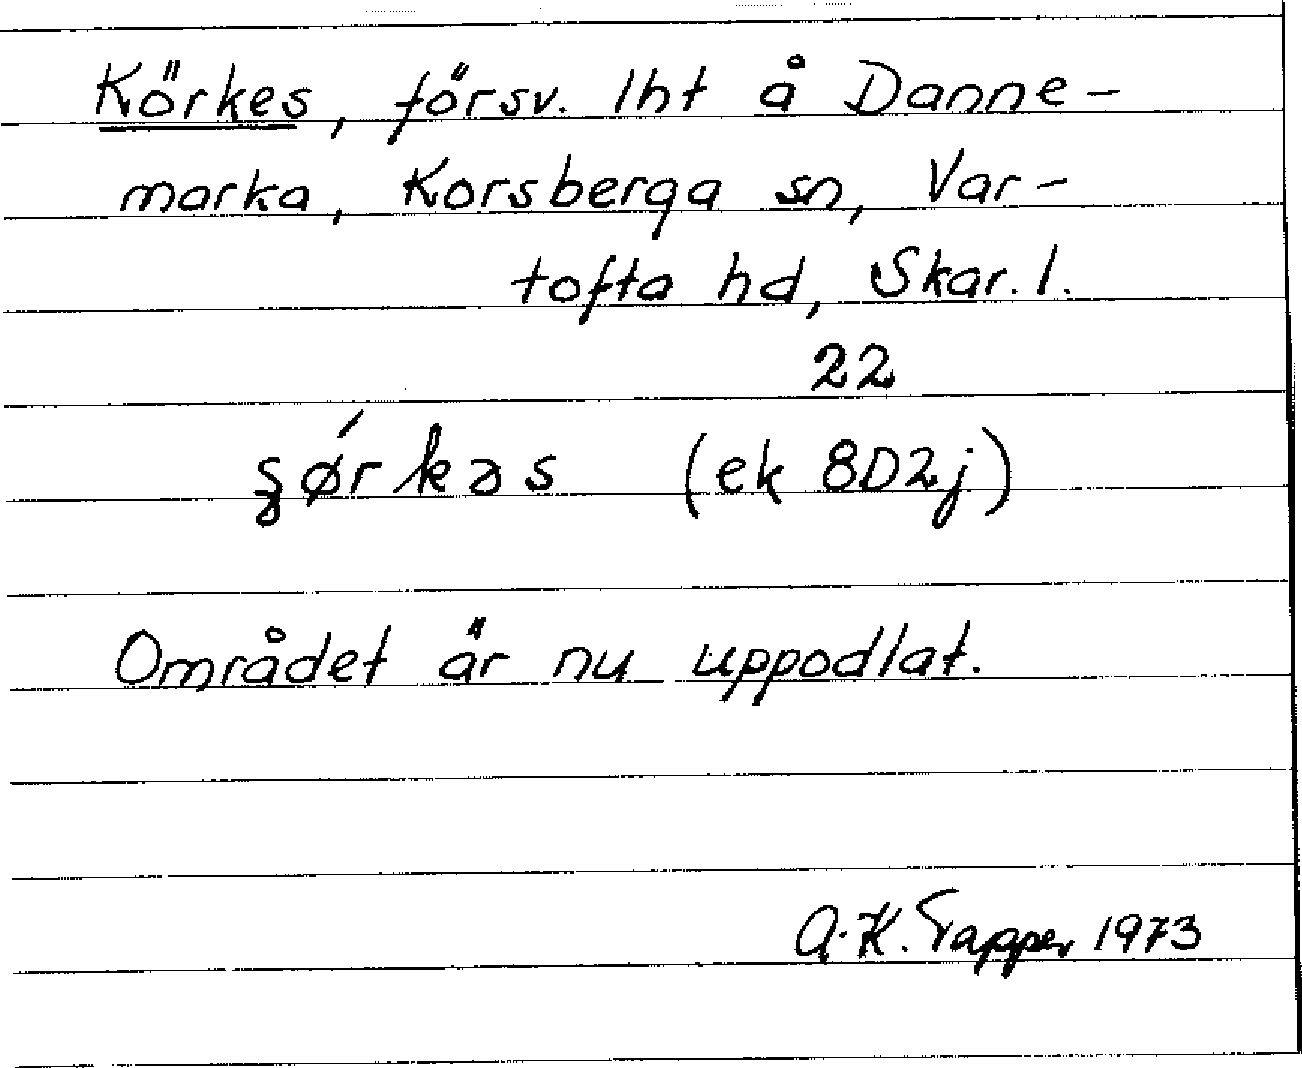 Körkes, försv. lht å Danne-
marka, Korsberga sn, Var-
tofta hd, Skar. l.
22
ʂǿrkəs (ek 8D2j)
Området är nu uppodlat.
A.K. Tapper 1973